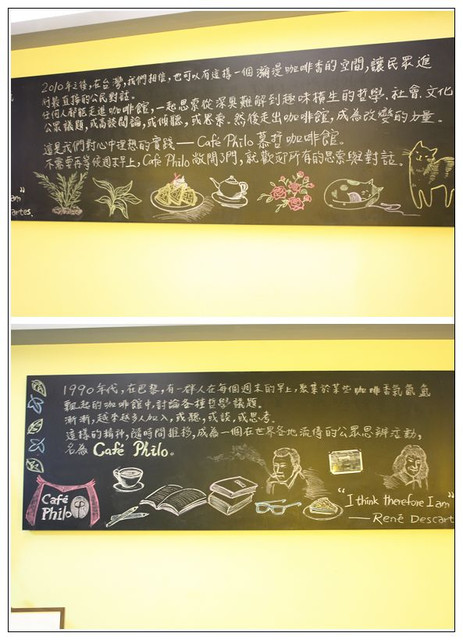 2010年之後,在台灣,我們相信,也可以有這樣一個瀰漫咖啡香的空間,讓民眾進
行最直接的公民對話。
任何人都能走進咖啡館,一起思索從深奧難解到趣味橫生的哲學、社會、文化
公眾議題,或高談闊論,或傾聽,或思索,然後走出咖啡館,成為改變的力量。
這是我們對心中理想的實踐——Café Philo 慕哲咖啡館。
不需要再等候週末早上,Café Philo 敞開了門,就歡迎所有的思索與對話。
am"
artes.
1990年代,在巴黎,有一群人在每個週末的早上,聚集於某些咖啡香氣氤氳
飄起的咖啡館中,討論各種哲學議題。
漸漸,越來越多人加入,或聽,或談,或思考。
這樣的精神,隨時間推移,成為一個在世界各地流傳的公眾思辨活動,
名為 Café Philo。
Café
Philo
"I think therefore I am"
——René Descart